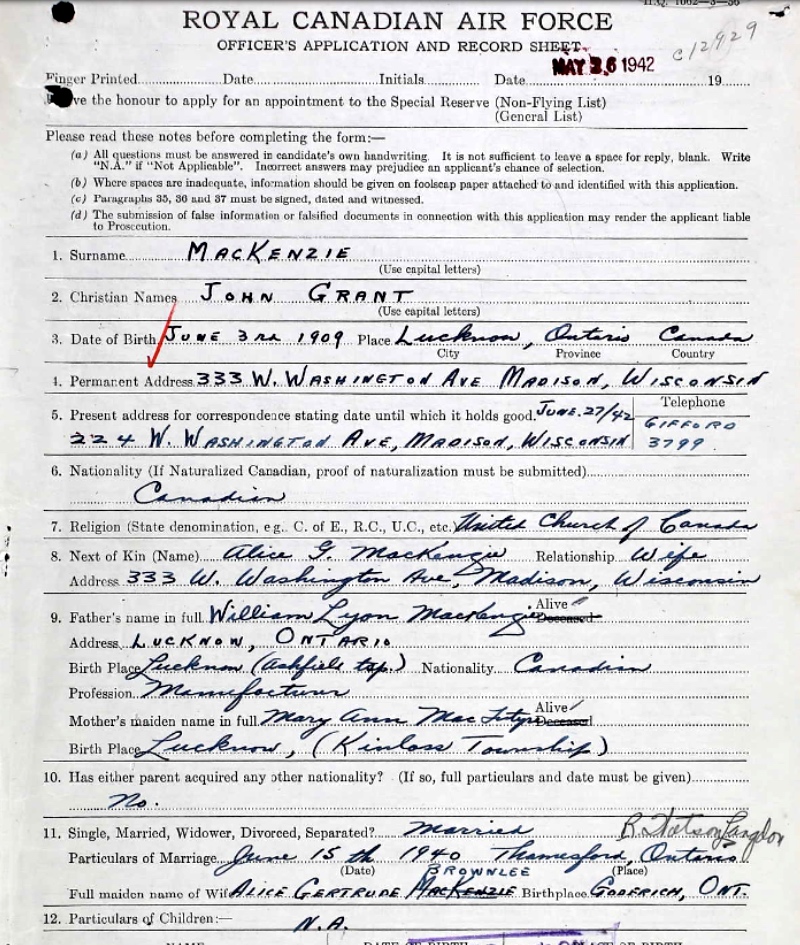 ROYAL CANADIAN AIR FORCE
OFFICER'S APPLICATION AND RECORD SHEET
C12929
Finger Printed Date Initials Date MAY 26 1942 19
ve the honour to apply for an appointment to the Special Reserve (Non-Flying List)
(General List)
Please read these notes before completing the form:—
(a) All questions must be answered in candidate's own handwriting. It is not sufficient to leave a space for reply, blank. Write
"N.A." if "Not Applicable". Incorrect answers may prejudice an applicant's chance of selection.
(b) Where spaces are inadequate, information should be given on foolscap paper attached to and identified with this application.
(c) Paragraphs 35, 36 and 37 must be signed, dated and witnessed.
(d) The submission of false information or falsified documents in connection with this application may render the applicant liable
to Prosecution.
1. Surname MACKENZIE
(Use capital letters)
2. Christian Names JOHN GRANT
(Use capital letters)
3. Date of Birth JUNE 3RD 1909 Place Lucknow, Ontario Canada
City Province Country
4. Permanent Address 333 W. WASHINGTON AVE MADISON, WISCONSIN
5. Present address for correspondence stating date until which it holds good. JUNE. 27/42 Telephone
224 W. WASHINGTON AVE, MADISON, WISCONSIN GIFFORD
3799
6. Nationality (If Naturalized Canadian, proof of naturalization must be submitted)
Canadian
7. Religion (State denomination, e.g. C. of E., R.C., U.C., etc.) United Church of Canada
8. Next of Kin (Name) Alice G. MacKenzie Relationship Wife
Address 333 W. Washington Ave, Madison, Wisconsin
9. Father's name in full William Lyon MacKenzie Alive Deceased
Address LUCKNOW, ONTARIO
Birth Place Lucknow (Ashfield twp.) Nationality Canadian
Profession Manufacturer
Mother's maiden name in full Mary Ann Alive Deceased
Birth Place Lucknow, (Kinloss Township)
10. Has either parent acquired any other nationality? (If so, full particulars and date must be given)
No.
11. Single, Married, Widower, Divorced, Separated? Married
Particulars of Marriage June 15th 1940 Thamesford, Ontario
(Date) BROWNLEE (Place)
Full maiden name of Wife ALICE GERTRUDE MACKENZIE Birthplace GODERICH, ONT.
12. Particulars of Children:—
N.A.
NAME DATE OF BIRTH PLACE OF BIRTH